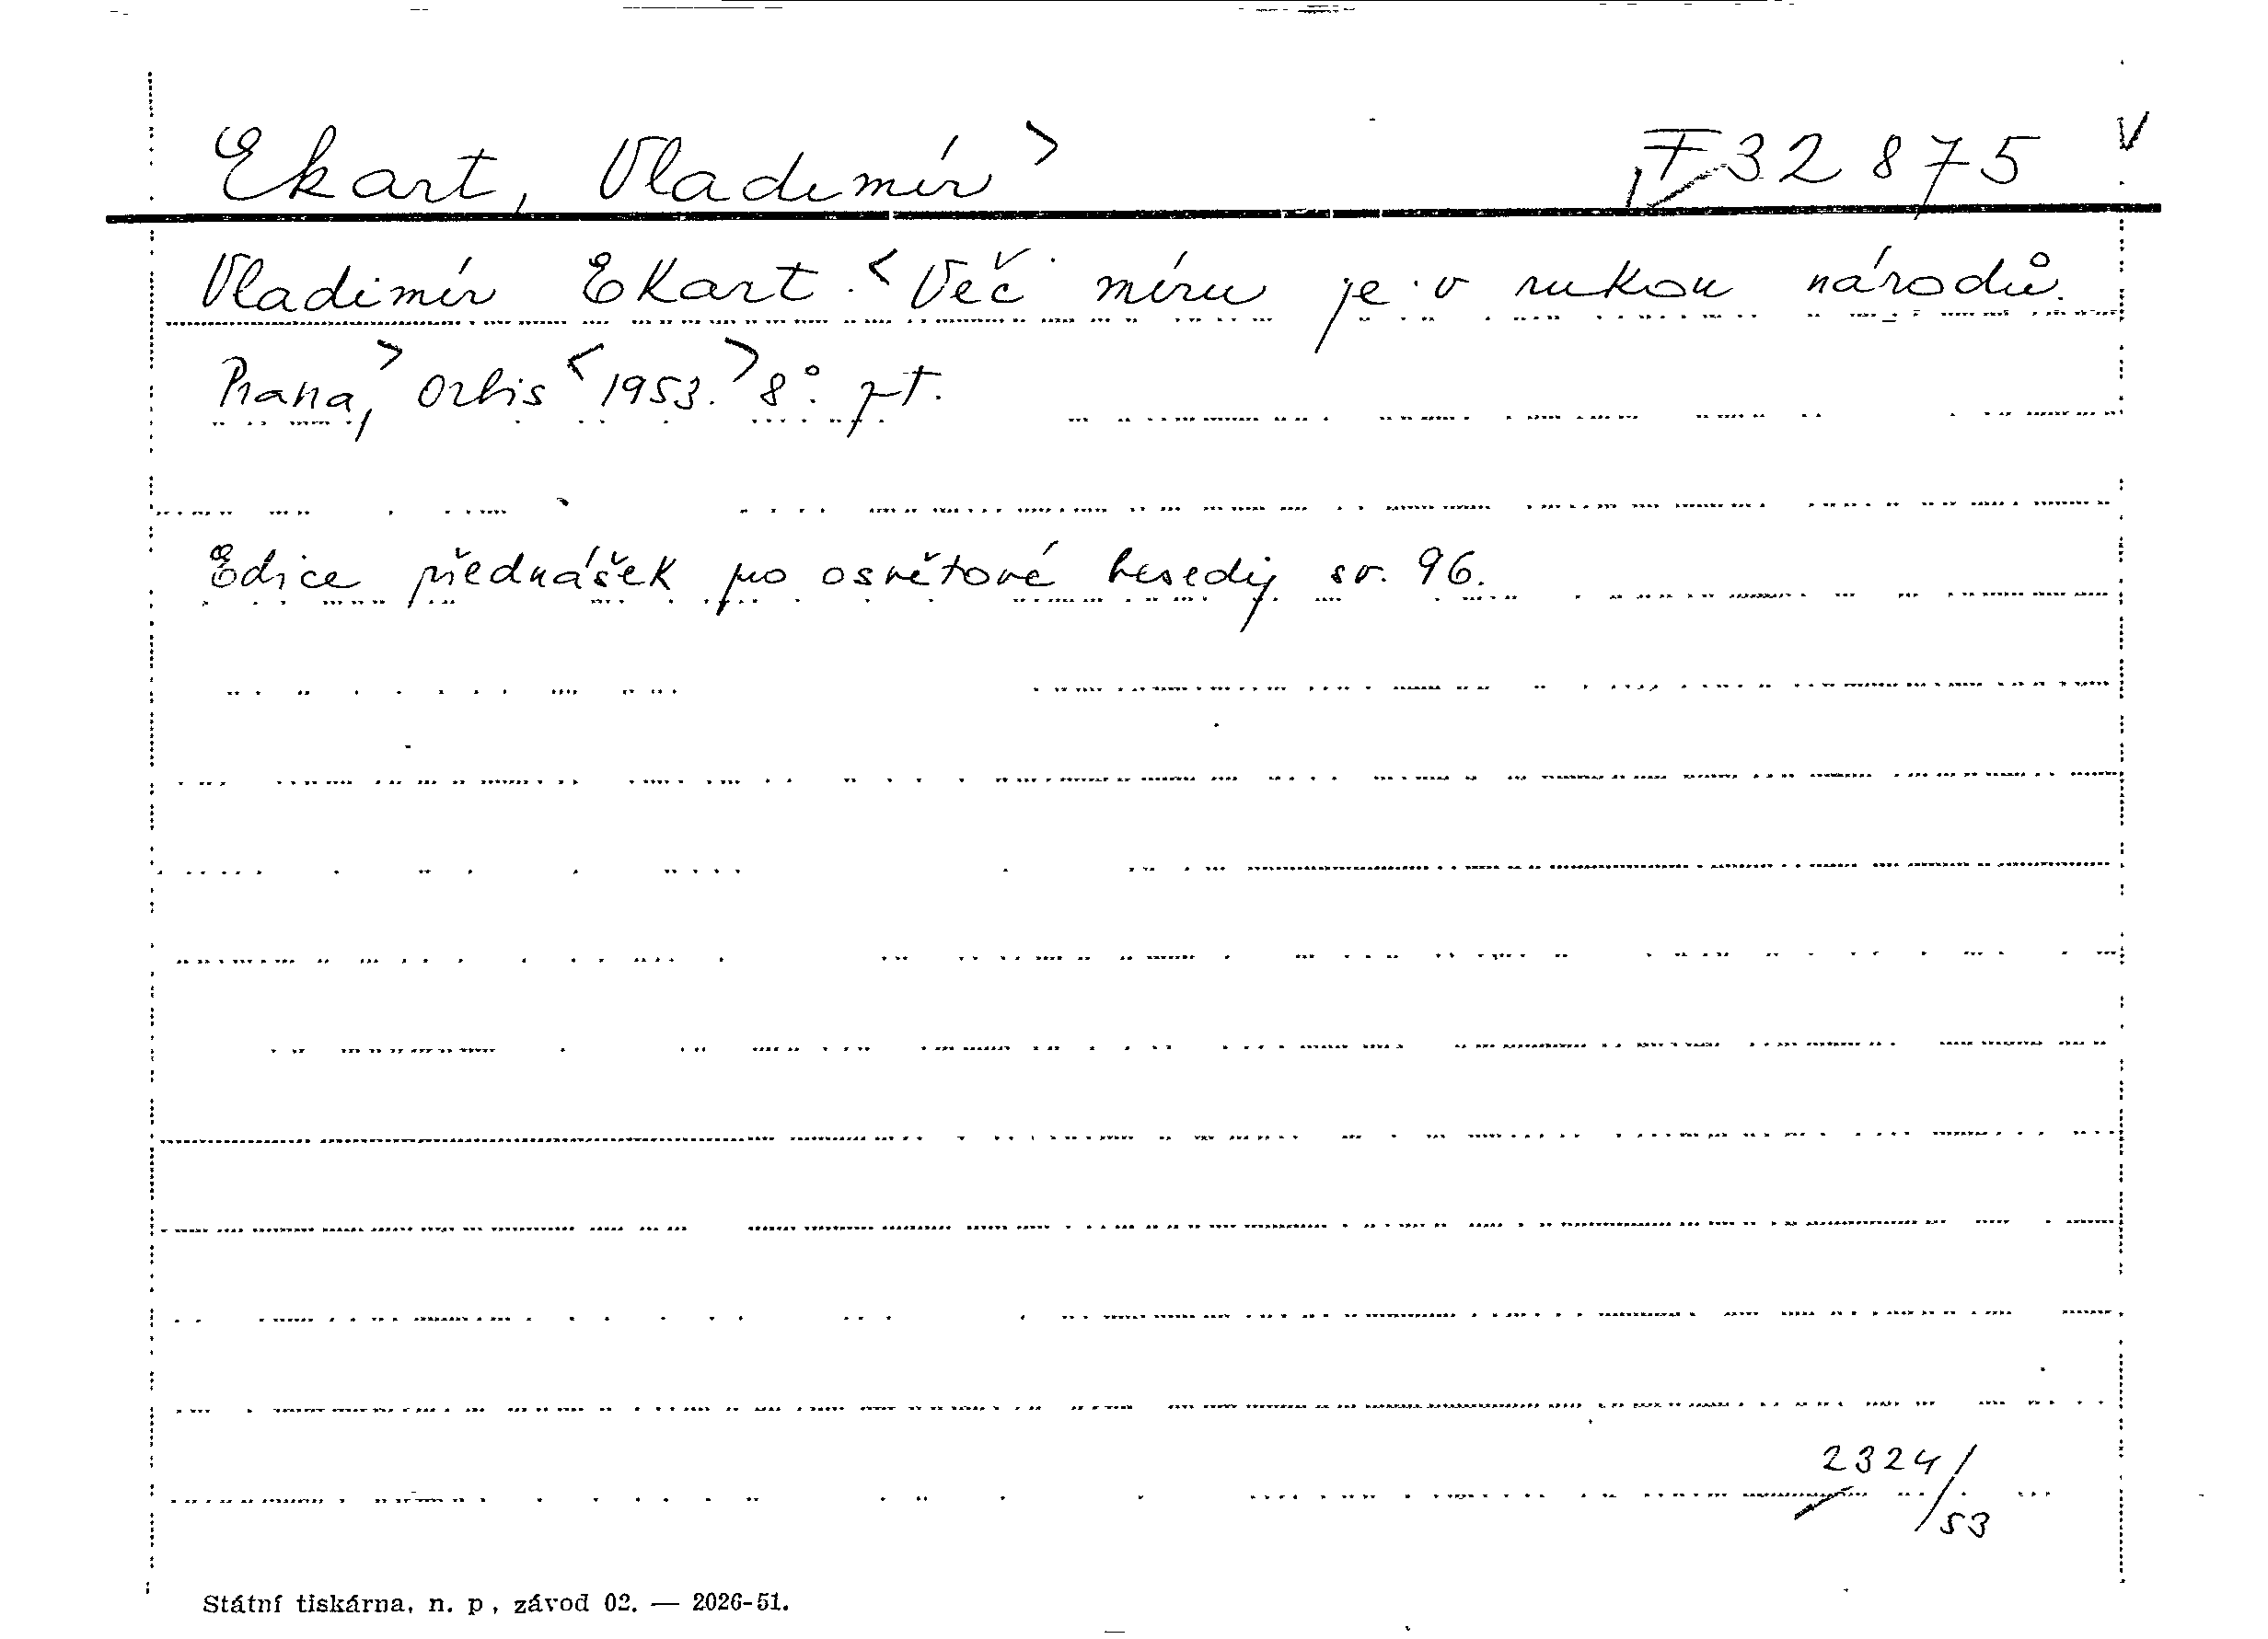 Ekart, Vladimír > F 32 875 v
Vladimír Ekart. < Věč míru je v rukou národů.
Praha, > Orbis < 1953. > 8°. pt.
Edice přednášek pro osvětové besedy sv. 96.
2324/53
Státní tiskárna, n. p., závod 02. — 2026-51.